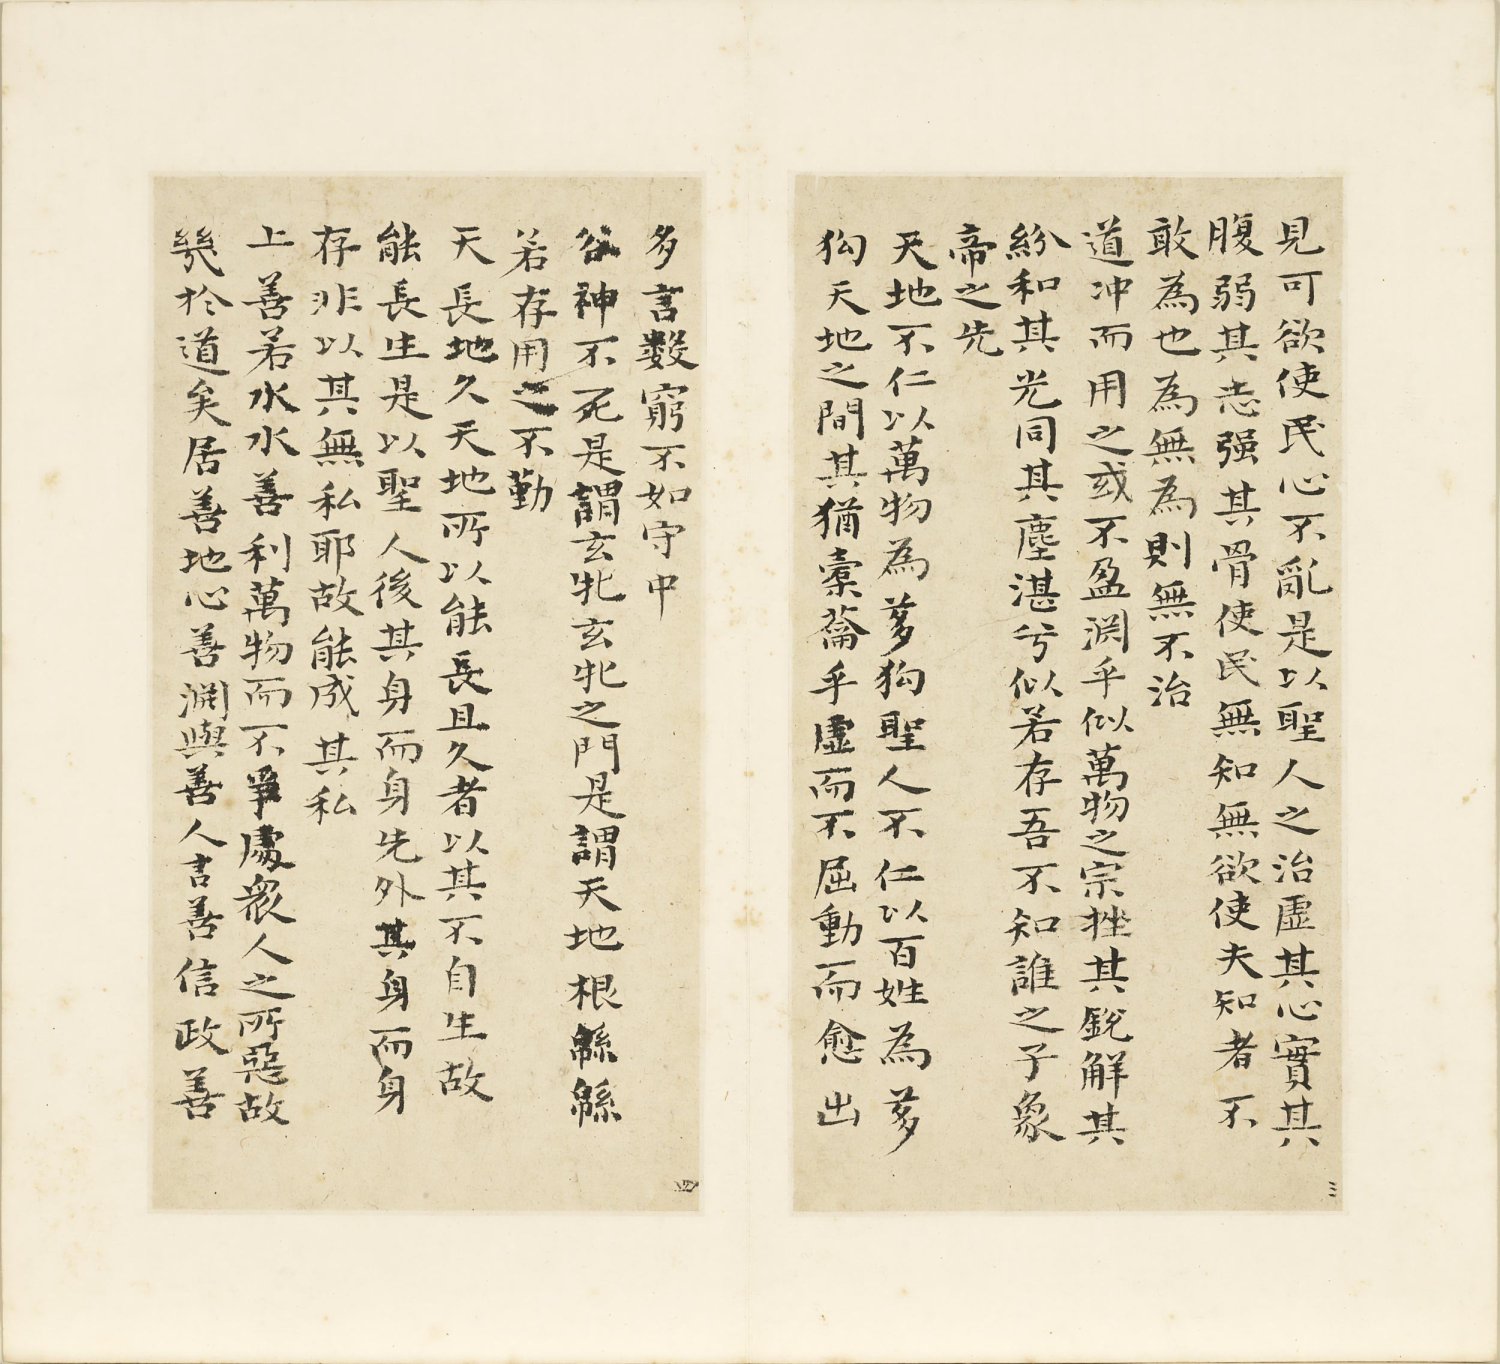 見可欲使民心不亂是以聖人之治虛其心實其
腹弱其志强其骨使民無知無欲使夫知者不
敢為也為無為則無不治
道冲而用之或不盈渊乎似萬物之宗挫其銳解其
紛和其光同其塵湛兮似若存吾不知誰之子象
帝之先
天地不仁以萬物為芻狗聖人不仁以百姓為芻
狗天地之間其猶橐籥乎虛而不屈動而愈出
三
多言數窮不如守中
谷神不死是謂玄牝玄牝之門是謂天地根緜緜
若存用之不勤
天長地久天地所以能長且久者以其不自生故
能長生是以聖人後其身而身先外其身而身
存非以其無私耶故能成其私
上善若水水善利萬物而不爭處衆人之所惡故
幾於道矣居善地心善渊與善人言善信政善
四